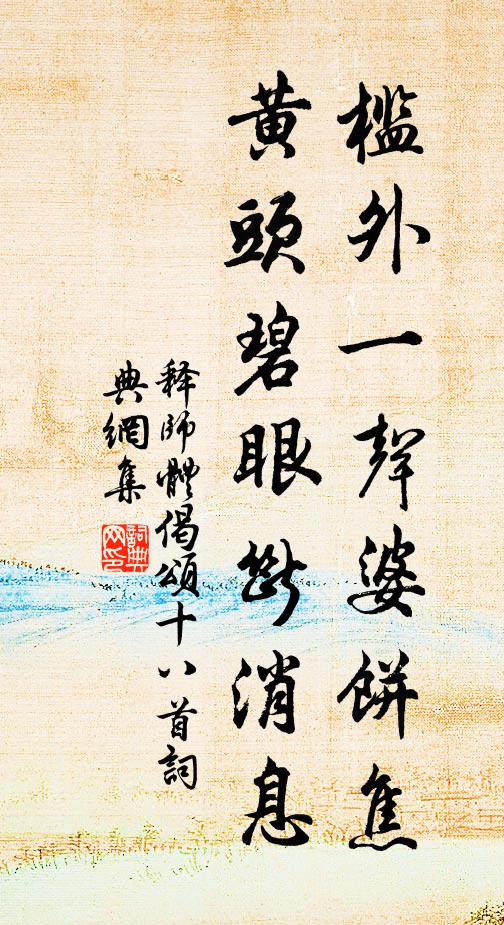 槛外一聲婆餅焦
黃頭碧眼斷消息
释師體偈頌十八首詞
典網集
詞典
网印